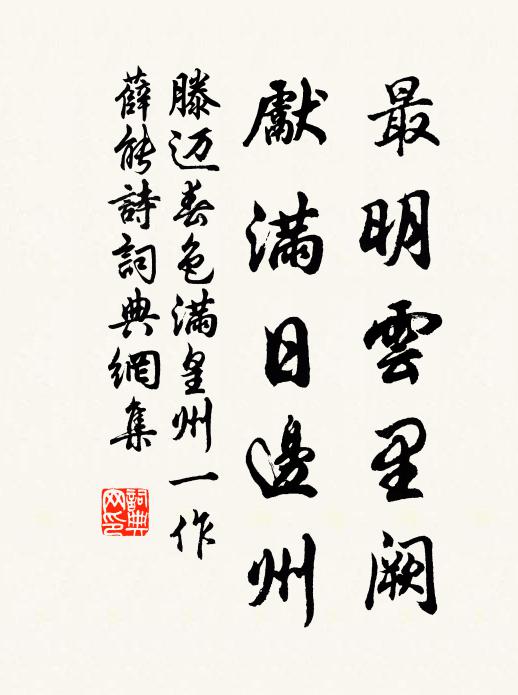 最明雲里阙
獻满日邊州
滕迈春色满皇州一作
薛能詩詞典網集
詞典网印